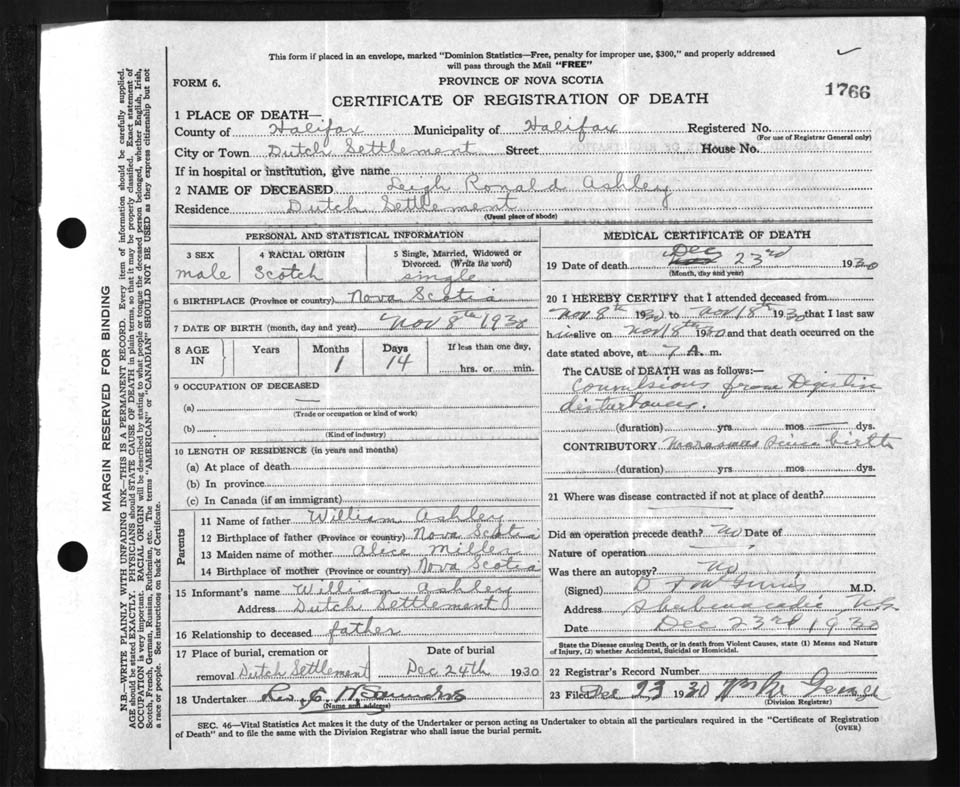 This form if placed in an envelope, marked "Dominion Statistics—Free, penalty for improper use, $300," and properly addressed
will pass through the Mail "FREE"
FORM 6.
PROVINCE OF NOVA SCOTIA
1766
CERTIFICATE OF REGISTRATION OF DEATH
1 PLACE OF DEATH—
County of Halifax Municipality of Halifax Registered No.
(For use of Registrar General only)
City or Town Dutch Settlement Street House No.
If in hospital or institution, give name
2 NAME OF DECEASED Leigh Ronald Ashley
Residence Dutch Settlement
(Usual place of abode)
PERSONAL AND STATISTICAL INFORMATION
3 SEX 4 RACIAL ORIGIN 5 Single, Married, Widowed or
Divorced. (Write the word)
male Scotch single
6 BIRTHPLACE (Province or country) Nova Scotia
7 DATE OF BIRTH (month, day and year) Nov 8th 1930
8 AGE IN Years Months Days If less than one day,
1 14 hrs. or min.
9 OCCUPATION OF DECEASED
(a) —
(Trade or occupation or kind of work)
(b)
(Kind of industry)
10 LENGTH OF RESIDENCE (in years and months)
(a) At place of death
(b) In province
(c) In Canada (if an immigrant)
Parents
11 Name of father William Ashley
12 Birthplace of father (Province or country) Nova Scotia
13 Maiden name of mother Alice Miller
14 Birthplace of mother (Province or country) Nova Scotia
15 Informant's name William Ashley
Address Dutch Settlement
16 Relationship to deceased father
17 Place of burial, cremation or Date of burial
removal Dutch Settlement Dec 24th 1930
18 Undertaker Rev. J. W. Saunders
(Name and address)
MEDICAL CERTIFICATE OF DEATH
19 Date of death Dec 23rd 1930
(Month, day and year)
20 I HEREBY CERTIFY that I attended deceased from
Nov 8th 1930 to Nov 18th 1930 that I last saw
him alive on Nov 18th 1930 and that death occurred on the
date stated above, at 7 A. m.
The CAUSE of DEATH was as follows:—
Convulsions from Digestive
disturbances.
(duration) yrs mos — dys.
CONTRIBUTORY Marasmus since birth
(duration) yrs mos. dys.
21 Where was disease contracted if not at place of death?
Did an operation precede death? No Date of
Nature of operation
Was there an autopsy? No
(Signed) M.D.
Address Shubenacadie N.S.
Date Dec 23rd 1930
State the Disease causing Death, or in death from Violent Causes, state (1) Means and Nature
of Injury, (2) whether Accidental, Suicidal or Homicidal.
22 Registrar's Record Number
23 Filed Dec 23 1930
(Division Registrar)
SEC. 46—Vital Statistics Act makes it the duty of the Undertaker or person acting as Undertaker to obtain all the particulars required in the "Certificate of Registration
of Death" and to file the same with the Division Registrar who shall issue the burial permit.
(OVER)
MARGIN RESERVED FOR BINDING
N.B.—WRITE PLAINLY WITH UNFADING INK—THIS IS A PERMANENT RECORD. Every item of information should be carefully supplied.
AGE should be stated EXACTLY. PHYSICIANS should STATE CAUSE OF DEATH in plain terms, so that it may be properly classified. Exact statement of
OCCUPATION is very important. RACIAL ORIGIN will be described by stating to what people or race the deceased person belonged, whether English, Irish,
Scotch, French, German, Russian, Ruthenian, etc. The terms "AMERICAN" or "CANADIAN" SHOULD NOT BE USED as they express citizenship but not
a race or people. See instructions on back of Certificate.